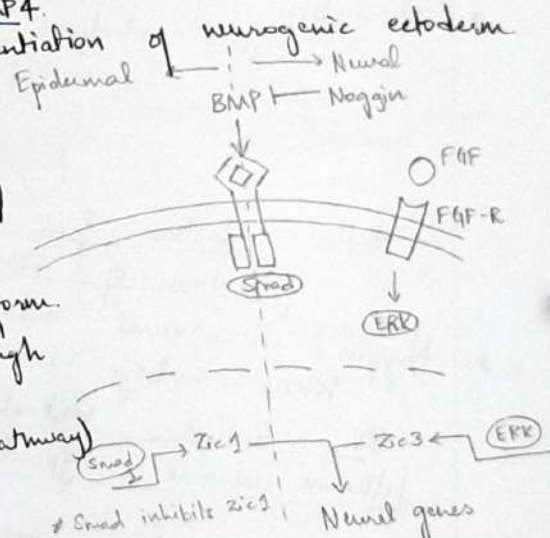 P4.
ntiation of neurogenic ectoderm
Epidermal Neural
BMP Noggin
FGF
FGF-R
Smad
orm.
ERK
gh
athway)
Smad Zic1 Zic3 ERK
* Smad inhibits Zic1 Neural genes